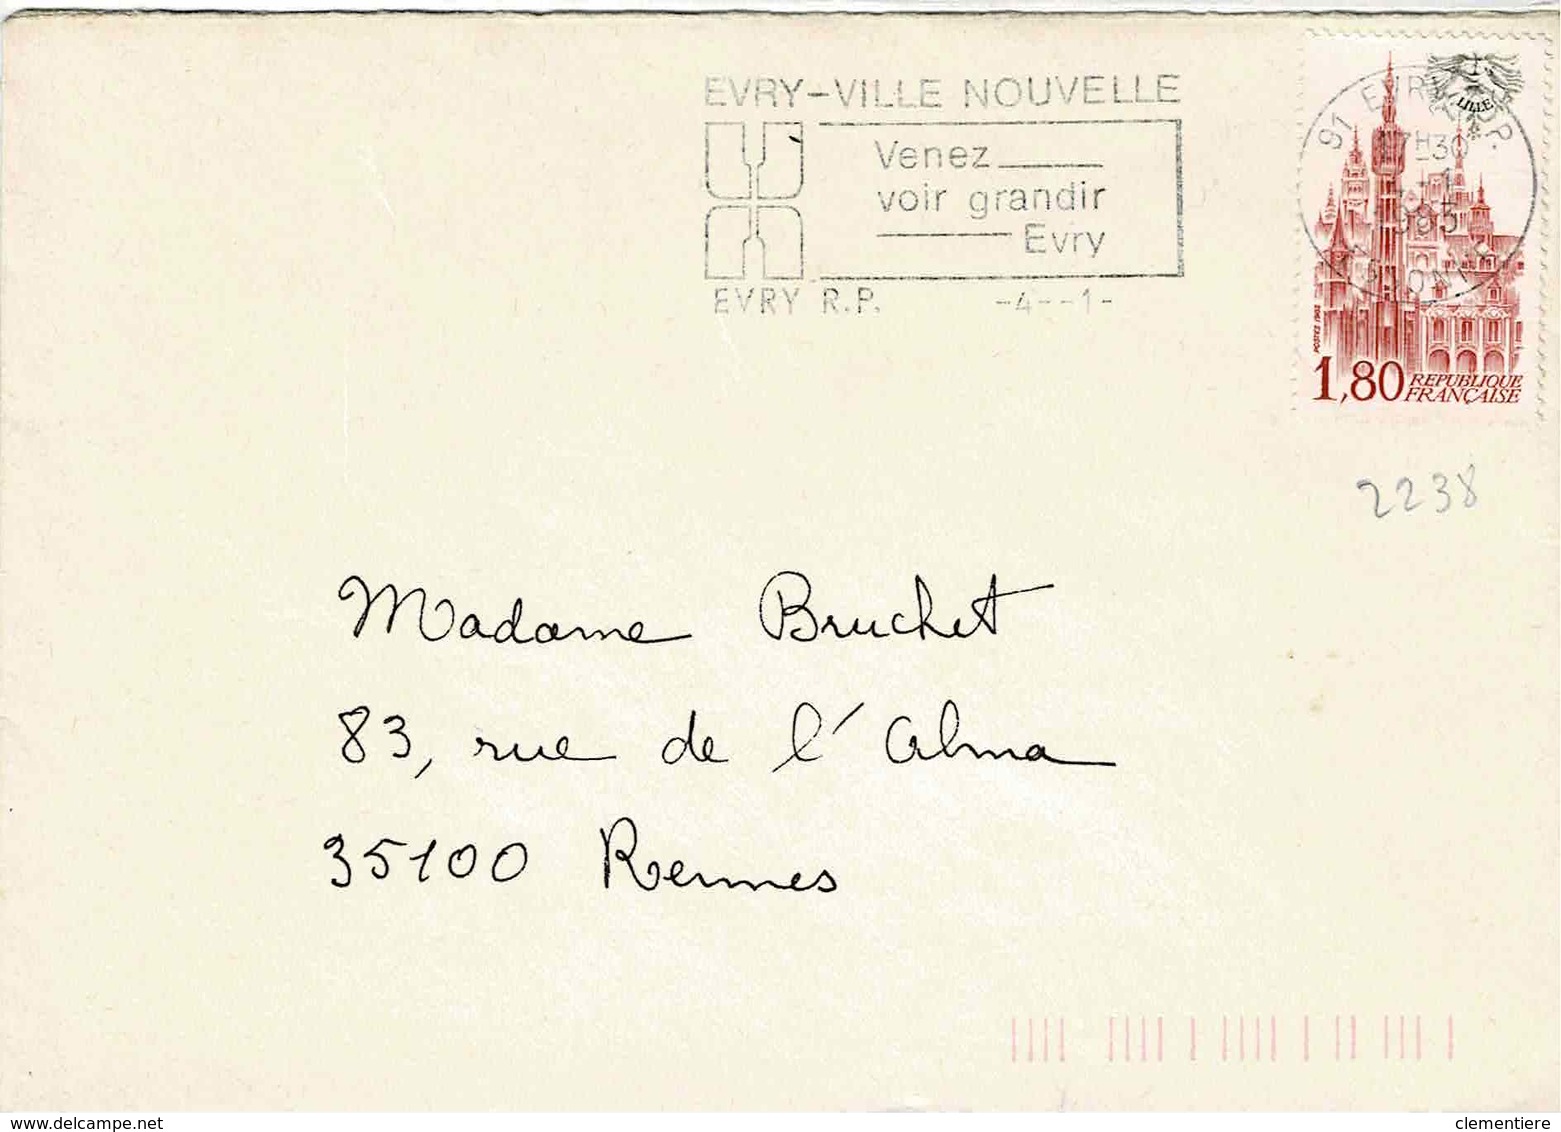 EVRY-VILLE NOUVELLE
Venez
voir grandir
Evry
EVRY R.P. -4--1-
91 EVRY R.P.
17H30
1983
LILLE
POSTES 1982
1,80 REPUBLIQUE
FRANÇAISE
2238
Madame Bruchet
83, rue de l'Alma
35100 Rennes
www.delcampe.net
clementiere